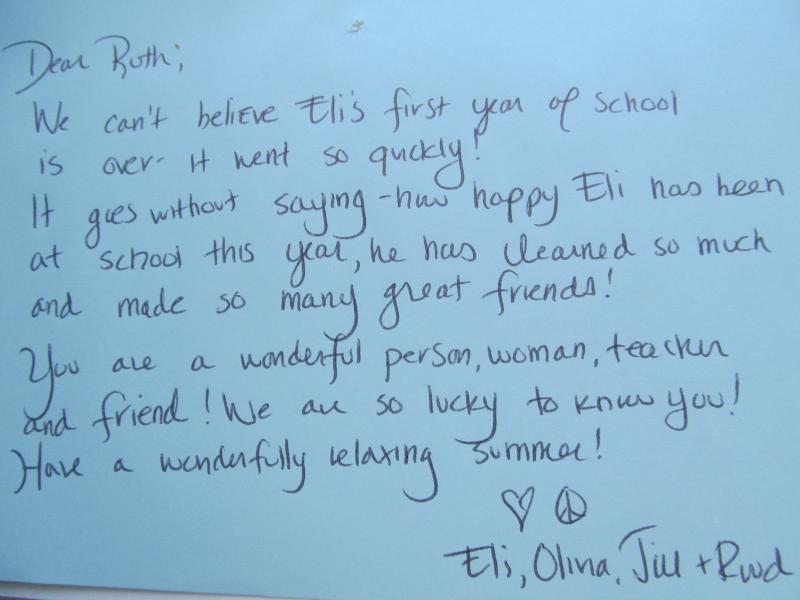 Dear Ruth,
We can't believe Eli's first year of school
is over - it went so quickly!
It goes without saying - how happy Eli has been
at school this year, he has learned so much
and made so many great friends!
You are a wonderful person, woman, teacher
and friend! We are so lucky to know you!
Have a wonderfully relaxing summer!
Eli, Olina, Jill +